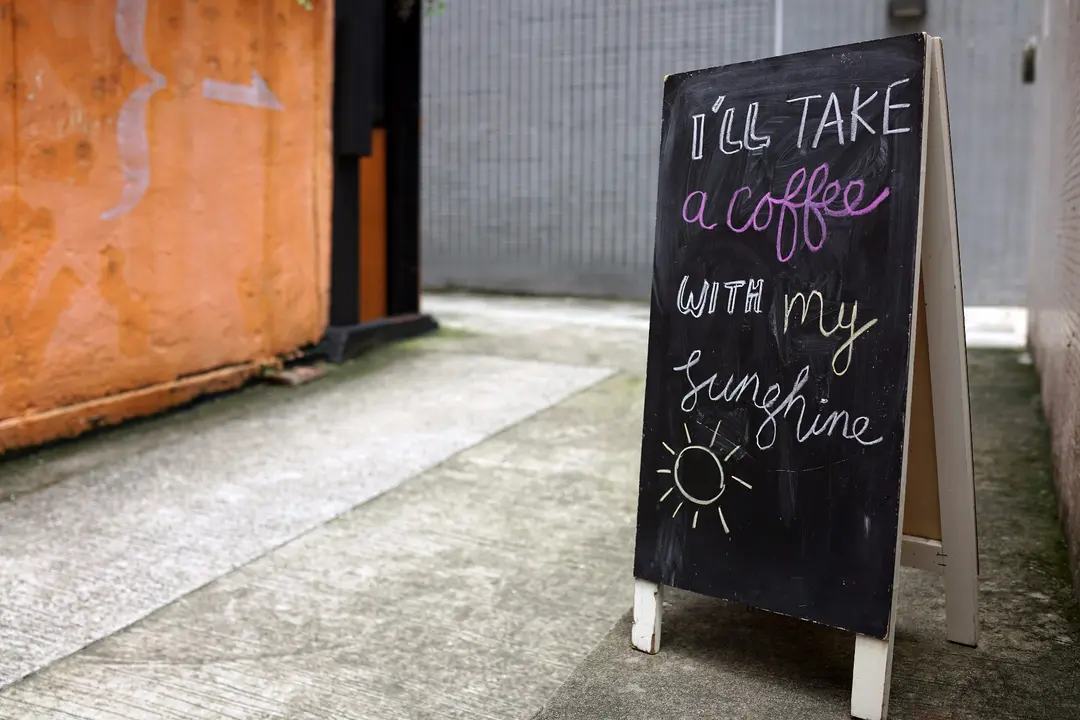 I'LL TAKE
a coffee
WITH my
Sunshine